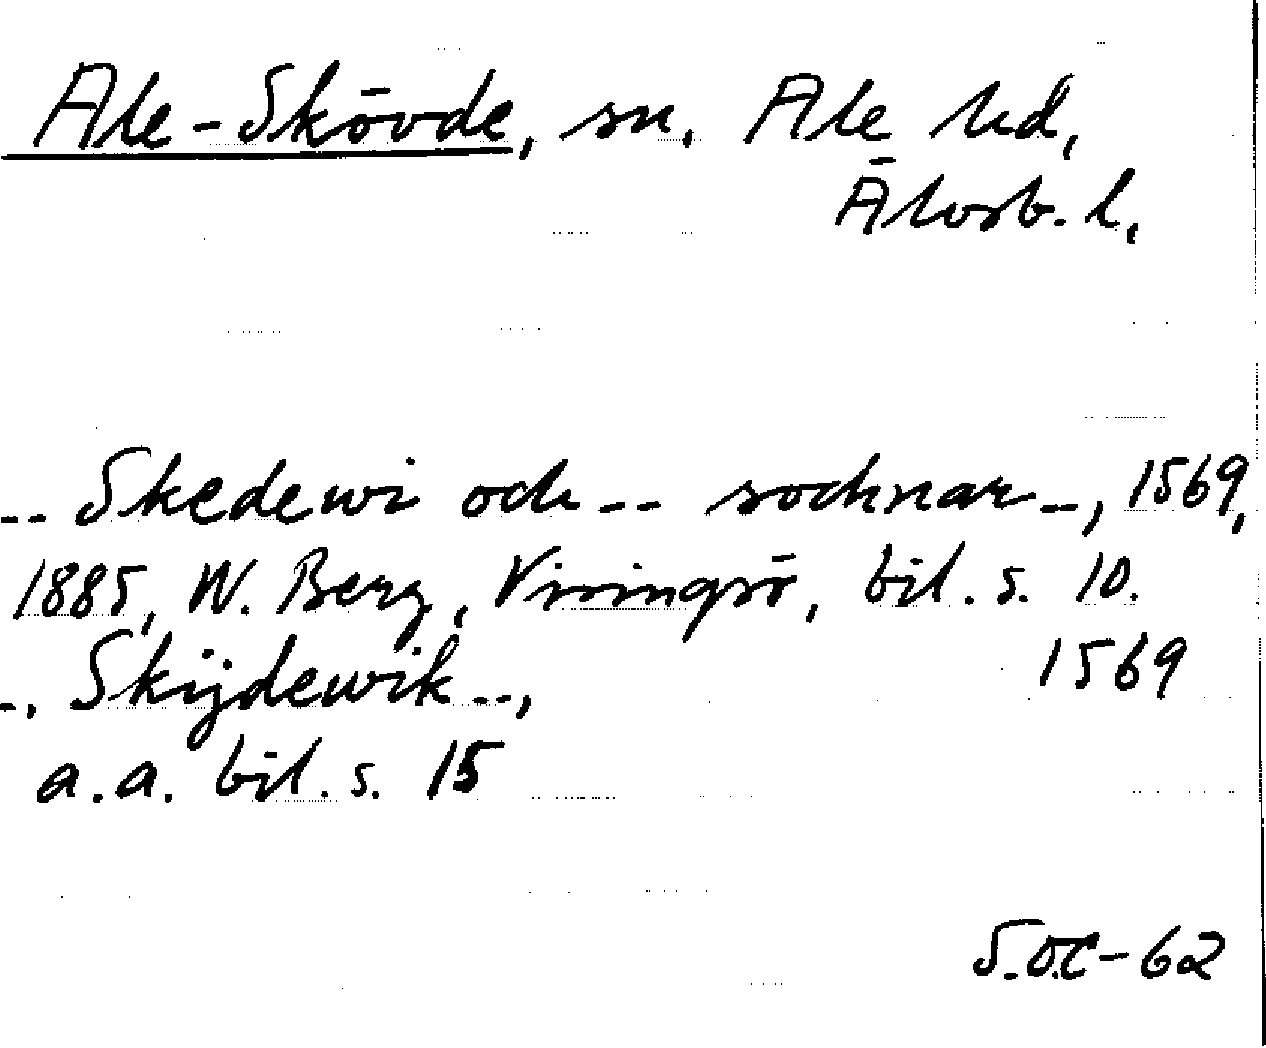 Ale-Skövde, sn. Ale hd,
Älvsb. l.
-- Skedewi och -- sochnar --, 1569,
1885, W. Berg, Visingsö, bil. s. 10.
--. Skijdewik --, 1569
a.a. bil. s. 15
S.OC-62